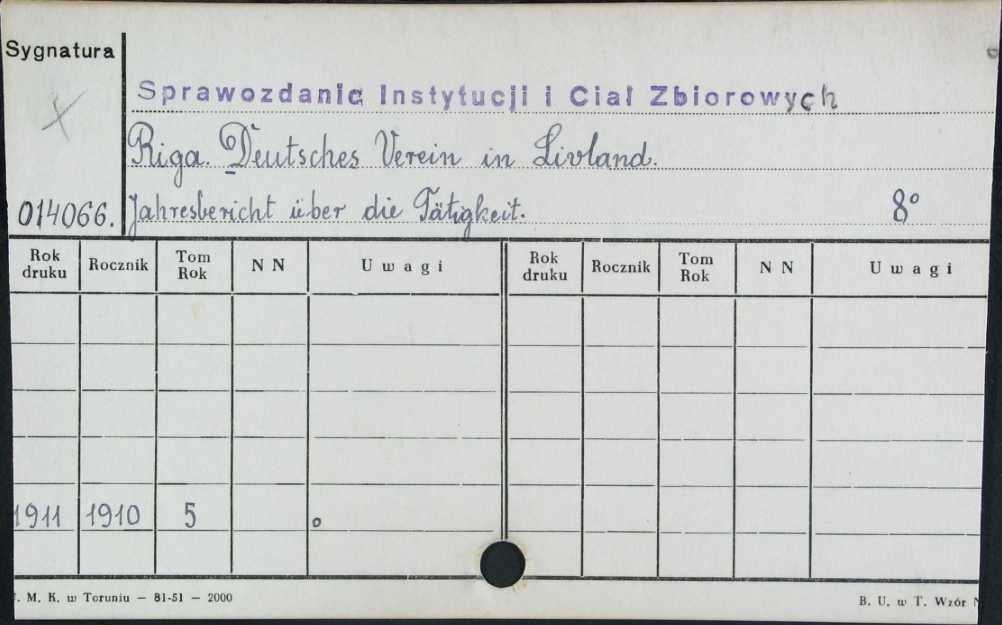 Sygnatura
Sprawozdania Instytucji i Ciał Zbiorowych
Riga. Deutsches Verein in Livland.
014066. Jahresbericht über die Tätigkeit. 8°
Rok druku Rocznik Tom Rok N N Uwagi Rok druku Rocznik Tom Rok N N Uwagi
1911 1910 5
. M. K. w Toruniu — 81-51 — 2000 B. U. w T. Wzór